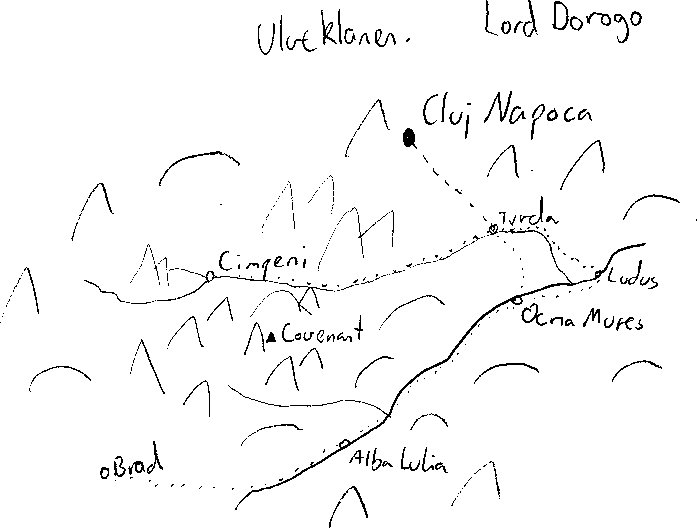 Ulveklanen.
Lord Dorogo
Cluj Napoca
Turda
Cimpeni
Ludus
Ocna Mures
Covenant
Alba Lulia
Brad